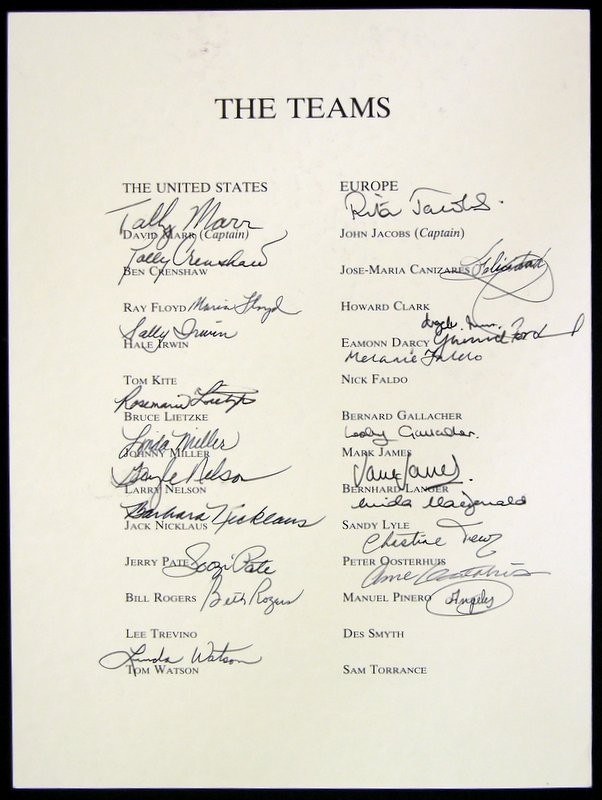 THE TEAMS
THE UNITED STATES
Tally Marr
DAVID MARR (Captain)
Polly Crenshaw
BEN CRENSHAW
RAY FLOYD Maria Floyd
Sally Irwin
HALE IRWIN
TOM KITE
Rosemarie Lietzke
BRUCE LIETZKE
Linda Miller
JOHNNY MILLER
Gayle Nelson
LARRY NELSON
Barbara Nicklaus
JACK NICKLAUS
JERRY PATE Soozi Pate
BILL ROGERS Beth Rogers
LEE TREVINO
Linda Watson
TOM WATSON
EUROPE
Rita Jacobs.
JOHN JACOBS (Captain)
JOSE-MARIA CANIZARES Felicidad
HOWARD CLARK
EAMONN DARCY
Melanie Faldo
NICK FALDO
BERNARD GALLACHER
Lesley Gallacher.
MARK JAMES
Jane James.
BERNHARD LANGER
Linda Macdonald
SANDY LYLE
Christine
PETER OOSTERHUIS
Anne Oosterhuis
MANUEL PINERO Angeles
DES SMYTH
SAM TORRANCE